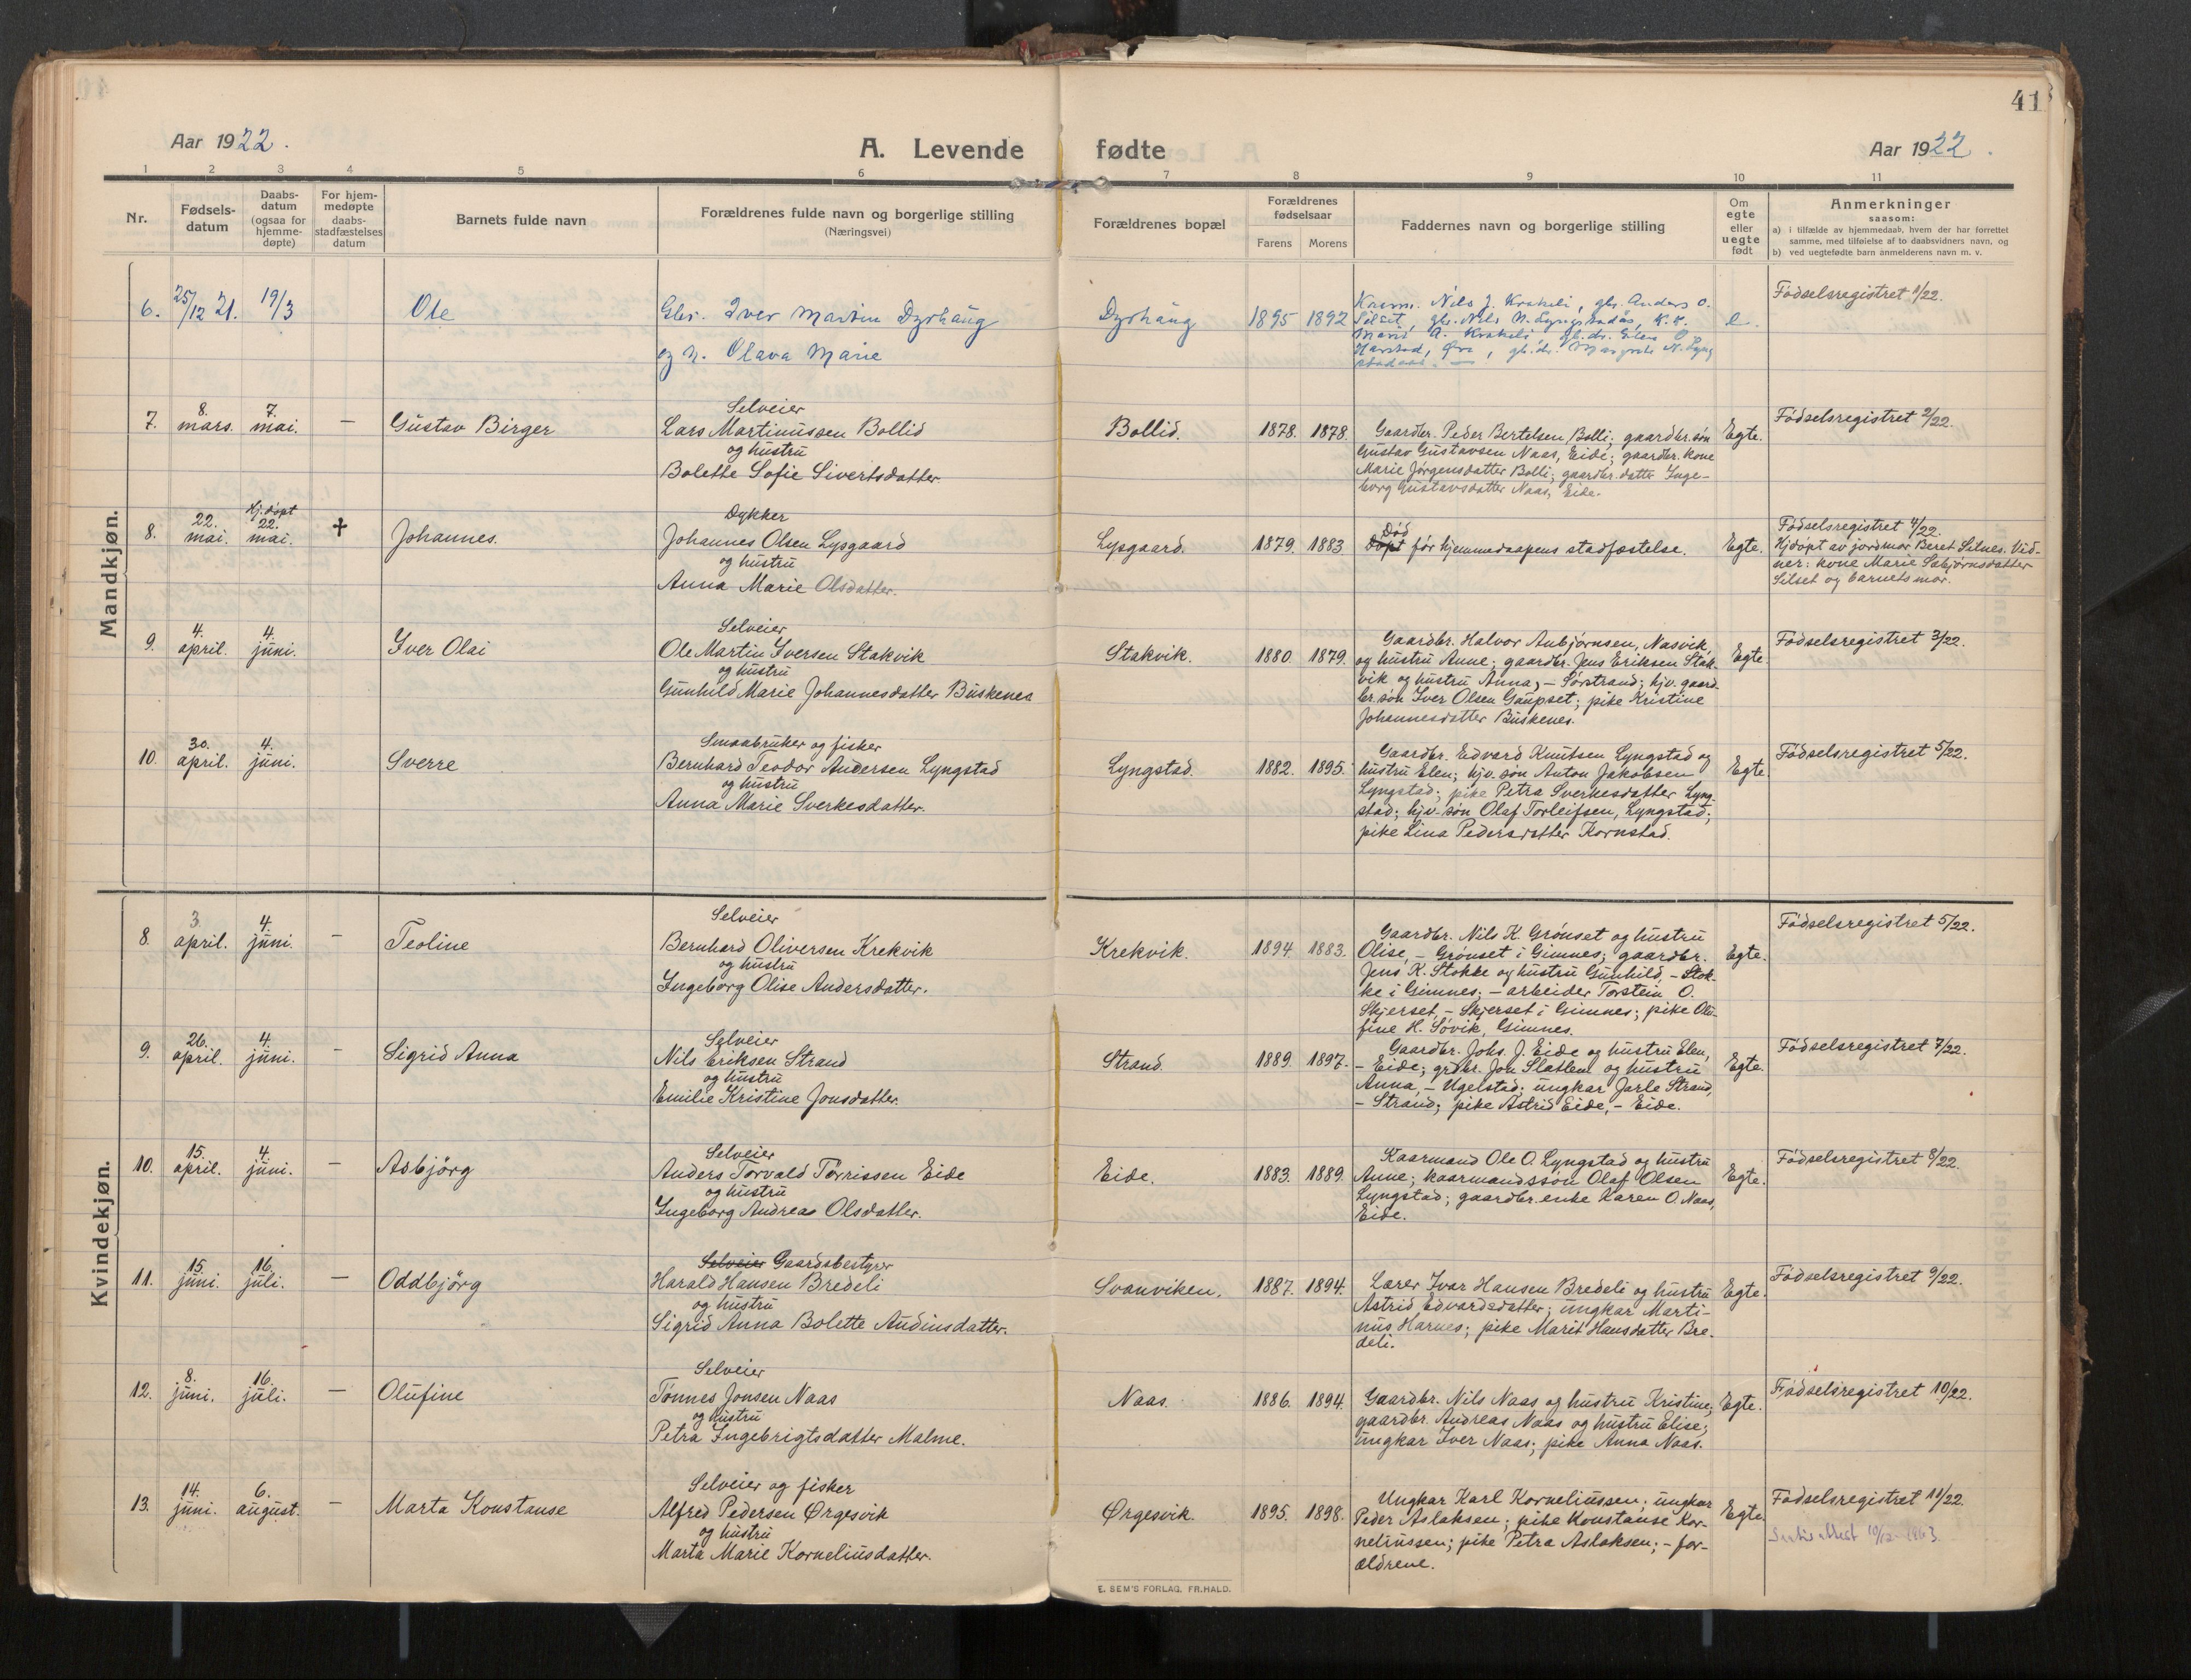 41
Aar 1922.
A. Levende fødte
Aar 1922.
1 2 3 4 5 6 7 8 9 10 11
Nr.
Fødsels-
datum
Daabs-
datum
(ogsaa for
hjemme-
døpte)
For hjem-
medøpte
daabs-
stadfæstelses
datum
Barnets fulde navn
Forældrenes fulde navn og borgerlige stilling
(Næringsvei)
Forældrenes bopæl
Forældrenes
fødselsaar
Farens Morens
Faddernes navn og borgerlige stilling
Om
egte
eller
uegte
født
Anmerkninger
saasom:
a) i tilfælde av hjemmedaab, hvem der har forrettet
samme, med tilføielse af to daabsvidners navn, og
b) ved uegtefødte barn anmelderens navn m. v.
Mandkjøn.
6. 25/12 21. 19/3 Ole
Gbr. Iver Martin Dyrhaug
og h. Olava Marie
Dyrhaug 1895 1892
Kaarm. Nils J. Krakeli, gbr. Anders O.
Silset, gbr. Nils N. Lyngstadås, K. k.
Marit A. Krakeli, gb.dr. Elen O.
Harstad, Øre, gb.dr. Margrete N. Lyng
stadaas.
e.
Fødselsregistret 1/22.
7. 8. mars. 7. mai. — Gustav Birger
Selveier
Lars Martinussen Bollid
og hustru
Bolette Sofie Sivertsdatter.
Bollid. 1878. 1878.
Gaardbr. Peder Bertelsen Bolli; gaardbr. søn
Gustav Gustavsen Naas, Eide; gaardbr. kone
Marie Jørgensdatter Bolli; gaardbr. datter Inge-
borg Gustavsdatter Naas, Eide.
Egte.
Fødselsregistret 2/22.
8. 22. mai. Hj.døpt 22. mai. † Johannes.
Dykker
Johannes Olsen Lysgaard
og hustru
Anna Marie Olsdatter.
Lysgaard. 1879. 1883
Død
Døpt før hjemmedaapens stadfæstelse.
Egte.
Fødselsregistret 4/22.
Hjdøpt av jordmor Beret Silnes. Vid-
ner: kone Marie Sæbjørnsdatter
Silset og barnets mor.
9. 4. april. 4. juni. Iver Olai
Selveier
Ole Martin Iversen Stakvik
og hustru
Gunhild Marie Johannesdatter Buskenes
Stakvik. 1880. 1879.
Gaardbr. Halvor Anbjørnsen, Nasvik,
og hustru Anne; gaardbr. Jens Eriksen Stak-
vik og hustru Anna, – Sørstrand; hjv. gaard-
br. søn Iver Olsen Gaupset; pike Kristine
Johannesdatter Buskenes.
Egte.
Fødselsregistret 3/22.
10. 30. april. 4. juni. Sverre
Smaabruker og fisker
Bernhard Teodor Andersen Lyngstad
og hustru
Anna Marie Sverkesdatter.
Lyngstad. 1882. 1895.
Gaardbr. Edvard Knutsen Lyngstad og
hustru Elen; hjv. søn Anton Jakobsen
Lyngstad; pike Petra Sverkesdatter Lyng-
stad; hjv. søn Olaf Torleifsen, Lyngstad;
pike Lina Pedersdatter Kornstad.
Egte.
Fødselsregistret 5/22.
Kvindekjøn.
8. 3. april. 4. juni. — Teoline
Selveier
Bernhard Oliversen Krekvik
og hustru
Ingeborg Olise Andersdatter.
Krekvik. 1894. 1883.
Gaardbr. Nils K. Grønset og hustru
Olise, – Grønset i Gimnes; gaardbr.
Jens K. Stokke og hustru Gunhild, – Stok-
ke i Gimnes; – arbeider Torstein O.
Skjerset, – Skjerset i Gimnes; pike Olu-
fine H. Søvik, Gimnes.
Egte.
Fødselsregistret 5/22.
9. 26. april. 4. juni. — Sigrid Anna
Selveier
Nils Eriksen Strand
og hustru
Emilie Kristine Jonsdatter.
Strand. 1889. 1897.
Gaardbr. Johs. J. Eide og hustru Elen,
– Eide; grdbr. Jon Slatlem og hustru
Anna, – Ugelstad; ungkar Jarle Strand,
– Strand; pike Astrid Eide, – Eide.
Egte.
Fødselsregistret 7/22.
10. 15. april. 4. juni. — Asbjørg
Selveier
Anders Torvald Tørrissen Eide
og hustru
Ingeborg Andrea Olsdatter.
Eide. 1883. 1889.
Kaarmand Ole O. Lyngstad og hustru
Anne; kaarmandssøn Olaf Olsen
Lyngstad; gaardbr. enke Karen O. Naas,
Eide.
Egte.
Fødselsregistret 8/22.
11. 15. juni. 16. juli. — Oddbjørg
Selveier Gaardsbestyrer
Harald Hansen Bredeli
og hustru
Sigrid Anna Bolette Audinsdatter.
Svanviken. 1887. 1894.
Lærer Ivar Hansen Bredeli og hustru
Astrid Edvardsdatter; ungkar Marti-
nus Harnes; pike Marit Hansdatter Bre-
deli.
Egte.
Fødselsregistret 9/22.
12. 8. juni. 16. juli. — Olufine
Selveier
Tønnes Jonsen Naas
og hustru
Petra Ingebrigtsdatter Malme.
Naas. 1886. 1894.
Gaardbr. Nils Naas og hustru Kristine;
gaardbr. Andreas Naas og hustru Elise;
ungkar Iver Naas; pike Anna Naas.
Egte.
Fødselsregistret 10/22.
13. 14. juni. 6. august. — Marta Konstanse
Selveier og fisker
Alfred Pedersen Ørgesvik
og hustru
Marta Marie Korneliusdatter.
Ørgesvik. 1895. 1898.
Ungkar Karl Korneliussen; ungkar
Peder Aslaksen; pike Konstanse Kor-
neliussen; pike Petra Aslaksen; – for-
ældrene.
Egte.
Fødselsregistret 11/22.
E. SEM'S FORLAG. FR.HALD.